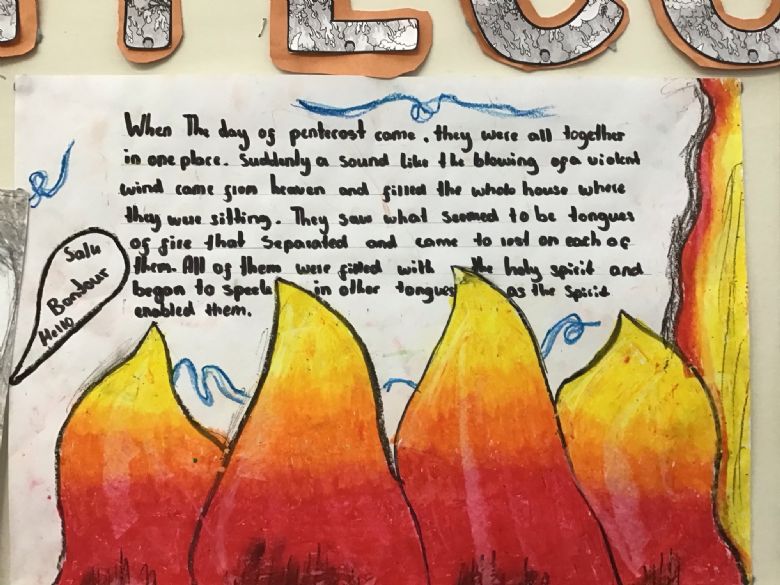 TECO
When The day of pentecost came . they were all together
in one place. Suddenly a sound like the blowing of a violent
wind came from heaven and filled the whole house where
they were sitting. They saw what seemed to be tongues
of fire that separated and came to rest on each of
them. All of them were filled with the holy spirit and
began to speek in other tongues as the spirit
enabled them.
Salu
Bonjour
Hello